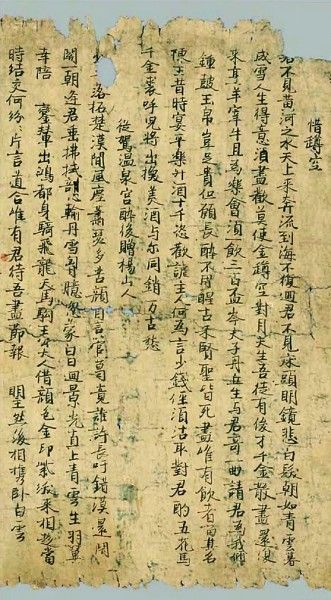 惜罇空
君不見黃河之水天上来奔流到海不復迴君不見床頭明鏡悲白髮朝如青雲暮
成雪人生得意湏盡歡莫使金罇空對月天生吾徒有俊才千金散盡還復
来烹羊宰牛且為樂會湏飲三百盃岑夫子丹丘生与君哥一曲請君為我傾
鍾鼓玉帛豈足貴但願長醉不用醒古来賢聖皆死盡唯有飲者留其名
陳王昔時宴平樂斗酒十千恣歡謔主人何為言少錢徑湏沽取對君酌五花馬
千金裘呼兒將出換美酒与尔同銷万古愁
從駕温泉宫醉後贈楊山人
落托楚漢間風塵蕭瑟多苦顏自言管葛竟誰許長吁錯漠還閉
關一朝逢君垂拂拭剖心輸丹雪胷臆忽蒙白日迴景光直上青雲生羽翼
幸陪鸞輦出鴻都身騎飛龍天馬駒王公大人借顏色金印紫綬来相趍當
時結交何紛々片言道合唯有君待吾盡節報明主然後相攜卧白雲